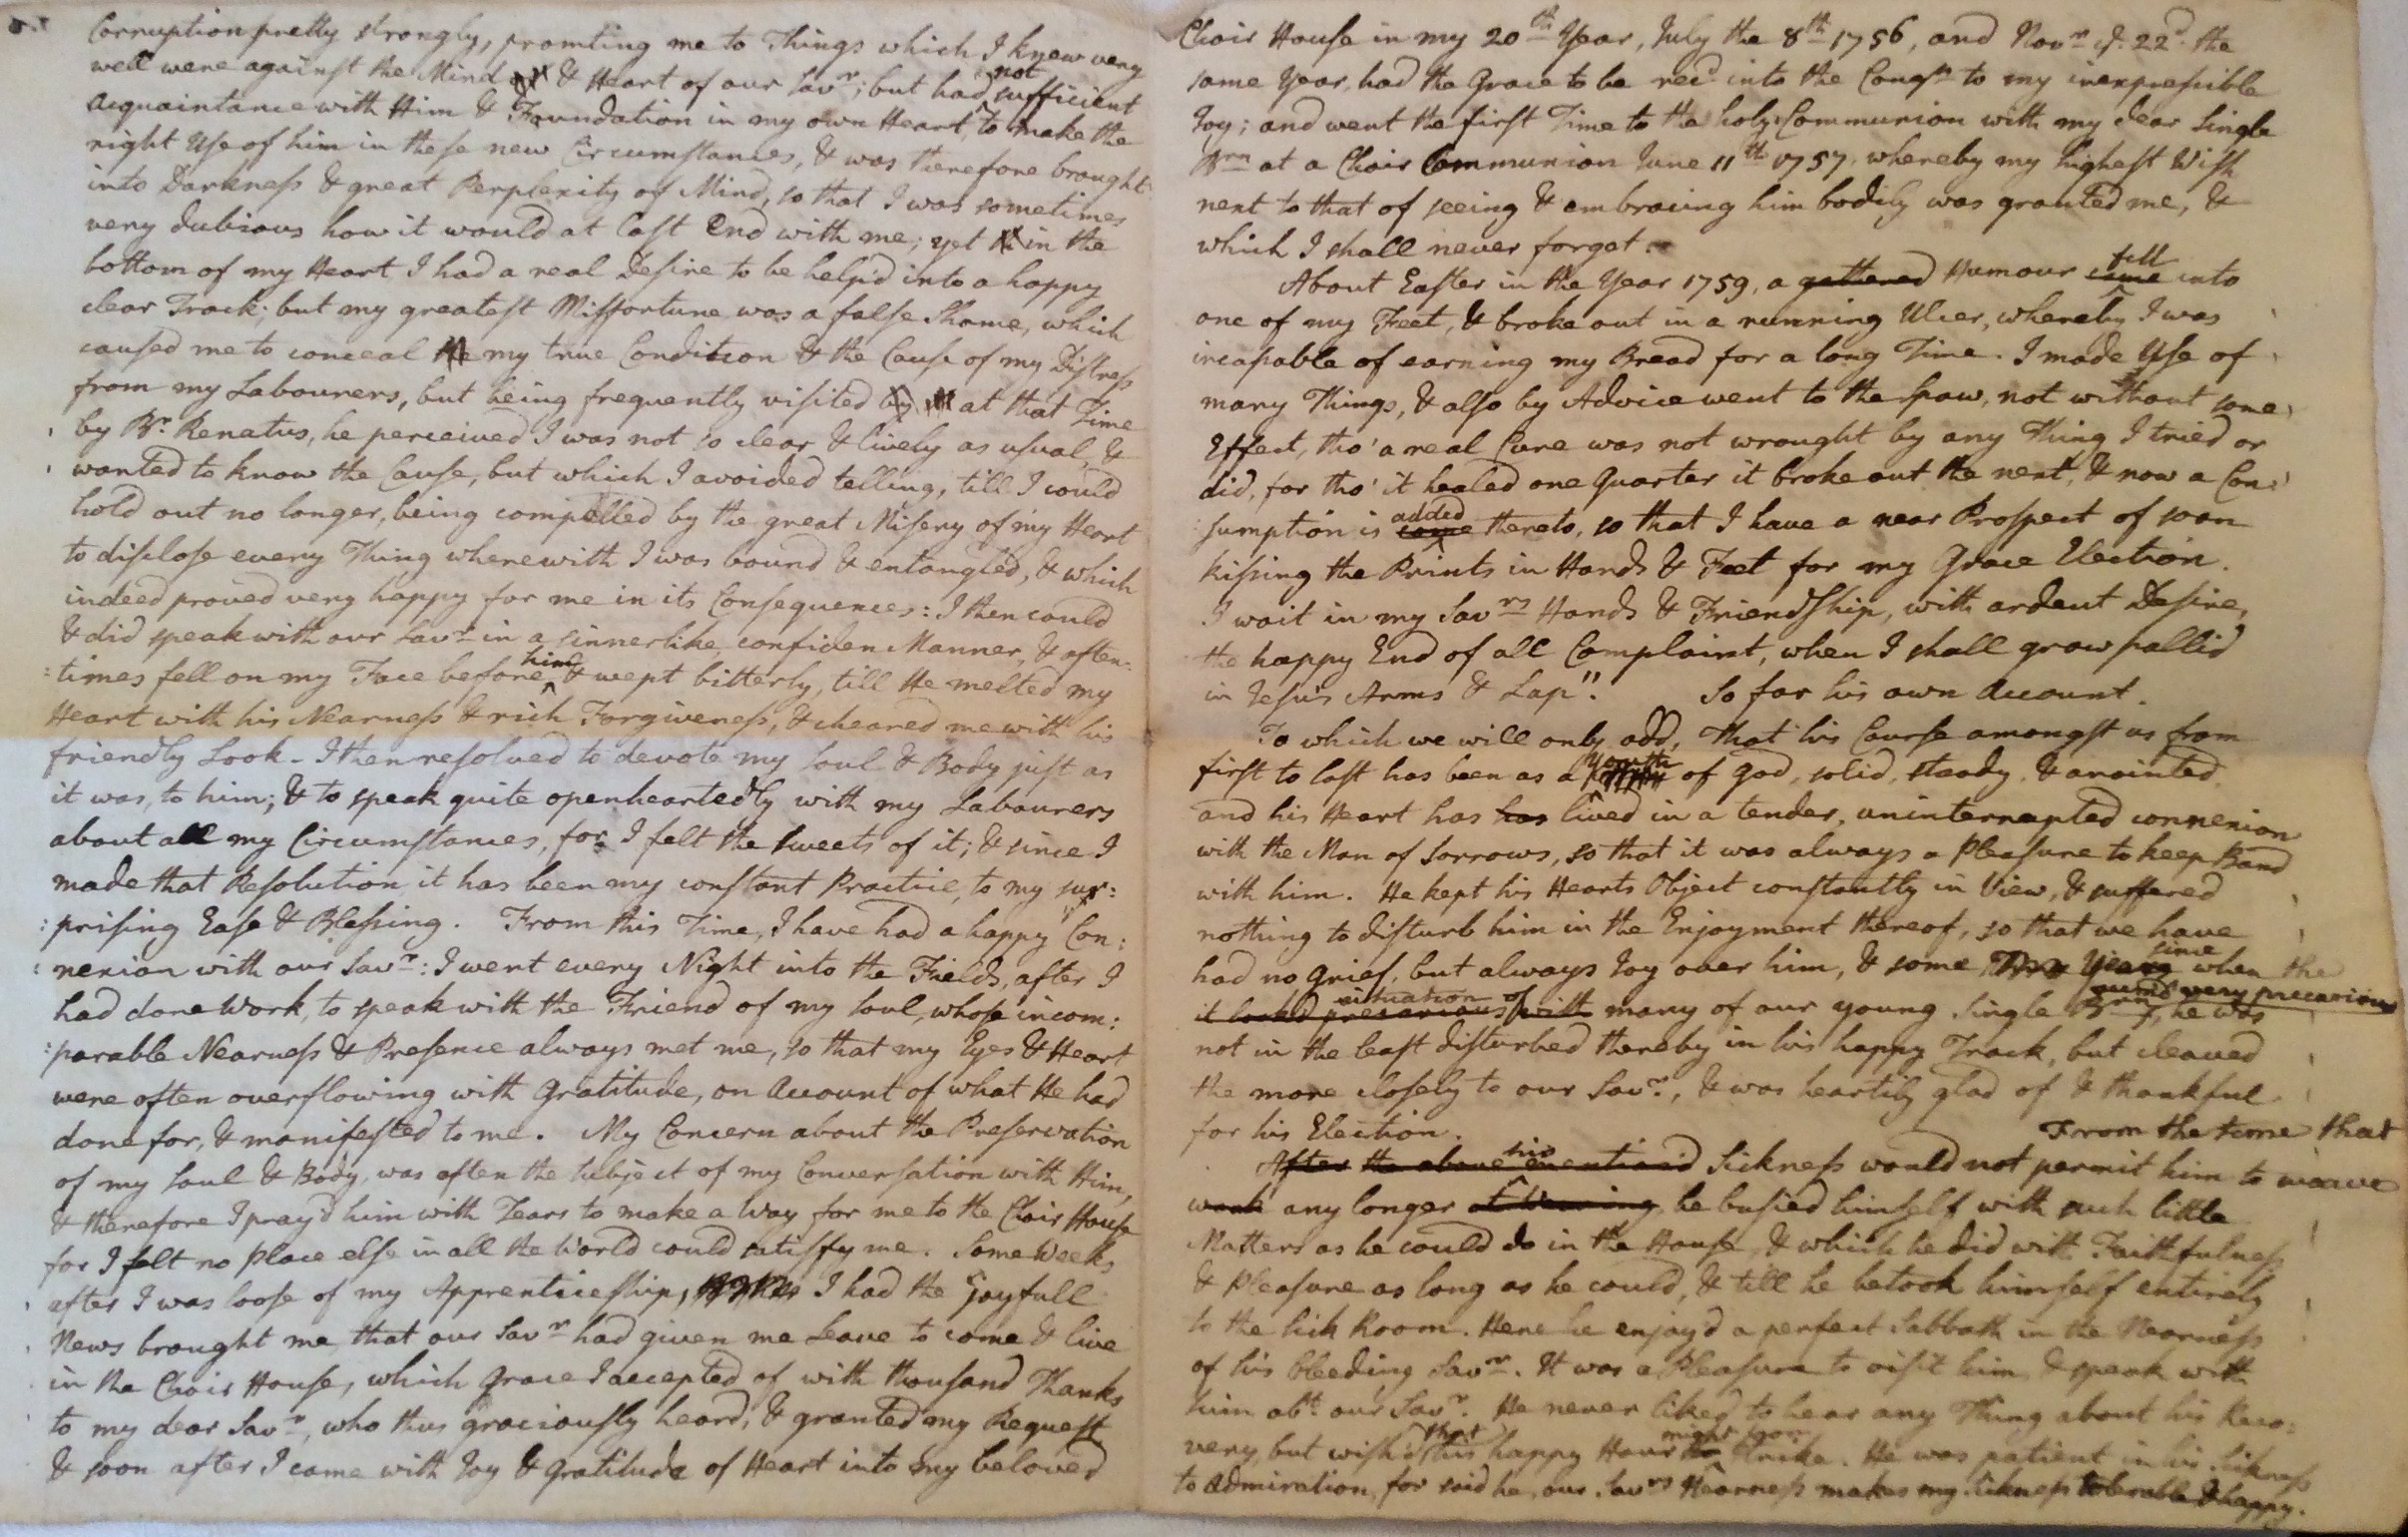 Corruption pretty strongly, promting me to Things which I knew very
well were against the Mind & Heart of our Savr; but had not sufficient
acquaintance with Him & Foundation in my own Heart, to make the
right Use of him in these new Circumstances, & was therefore brought
into Darkness & great Perplexity of Mind, so that I was sometimes
very dubious how it would at last End with me; yet in the
bottom of my Heart I had a real Desire to be help'd into a happy
clear Track; but my greatest Missfortune was a false Shame, which
caused me to conceal my true Condition & the Cause of my Distress
from my Labourers, but being frequently visited by at that Time
by Br. Renatus, he perceived I was not so clear & lively as usual, &
wanted to know the Cause, but which I avoided telling, till I could
hold out no longer, being compelled by the great Misery of my Heart
to disclose every Thing wherewith I was bound & entangled, & which
indeed proved very happy for me in its Consequences: I then could
& did speak with our Savr in a sinnerlike, confiden Manner, & often:
:times fell on my Face before him & wept bitterly, till He melted my
Heart with his Nearness & rich Forgiveness, & cheared me with his
friendly Look - I then resolved to devote my Soul & Body just as
it was, to him; & to speak quite openheartedly with my Labourers
about all my Circumstances, for I felt the Sweets of it; & since I
made that Resolution it has been my constant Practice, to my sur:
:prising Ease & Blessing. From this Time, I have had a happy Con:
:nexion with our Savr: I went every Night into the Fields, after I
had done Work, to speak with the Friend of my Soul, whose incom:
:parable Nearness & Presence always met me, so that my Eyes & Heart
were often overflowing with Gratitude, on Account of what He had
done for, & manifested to me. My Concern about the Preservation
of my Soul & Body, was often the Subject of my Conversation with Him,
& therefore I pray'd him with Tears to make a Way for me to the Choir House
for I felt no Place else in all the World could satisfy me. Some Weeks
after I was loose of my Apprenticeship, I had the joyfull
News brought me, that our Savr had given me Leave to come & live
in the Choir House, which Grace I accepted of with thousand Thanks
to my dear Savr, who thus graciously heard, & granted my Request
& soon after I came with Joy & Gratitude of Heart into my beloved
Choir House in my 20th Year, July the 8th 1756, and Novr ye 22d the
same Year, had the Grace to be recd into the Congn to my inexpressible
Joy; and went the first Time to the holy Communion with my dear Single
Brn at a Choir Communion June 11th 1757, whereby my highest Wish
next to that of seeing & embracing him bodily was granted me, &
which I shall never forget.
About Easter in the Year 1759, a gathered Humour came fell into
one of my Feet, & broke out in a running Ulcer, whereby I was
incapable of earning my Bread for a long Time. I made Use of
many Things, & also by Advice went to the Spaw, not without some
Effect, tho' a real Cure was not wrought by any Thing I tried or
did, for tho' it healed one Quarter it broke out the next, & now a Con:
:sumption is come added thereto, so that I have a near Prospect of soon
kissing the Prints in Hands & Feet for my Grace Election.
I wait in my Savrs Hands & Friendship, with ardent Desire,
the happy End of all Complaint, when I shall grow pallid
in Jesu's Arms & Lap". So far his own Account.
To which we will only add, That his Course amongst us from
first to last has been as a Youth of God, solid, steady, & anointed,
and his Heart has has lived in a tender, uninterrupted connexion
with the Man of Sorrows, so that it was always a Pleasure to keep Band
with him. He kept his Hearts Object constantly in View, & suffered
nothing to disturb him in the Enjoyment thereof, so that we have
had no Grief, but always Joy over him, & some Years since when the
it look'd precarious with situation of many of our young Single Brn, was very precarious he was
not in the least disturbed thereby in his happy Track, but cleaved
the more closely to our Savr, & was heartily glad of & thankful
for his Election. From the time that
After the above mention'd his Sickness would not permit him to weave
work any longer at Weaving he busied himself with such little
Matters as he could do in the House, & which he did with Faithfulness
& Pleasure as long as he could, & till he betook himself entirely
to the Sick Room. Here he enjoy'd a perfect Sabbath in the Nearness
of his bleeding Savr. It was a Pleasure to visit him & speak with
him abt our Savr. He never liked to hear any Thing about his Reco:
very, but wish'd that this happy Hour might soon strike. He was patient in his Sickness
to Admiration, for said he, our Savrs Nearness makes my Sickness tolerable & happy.